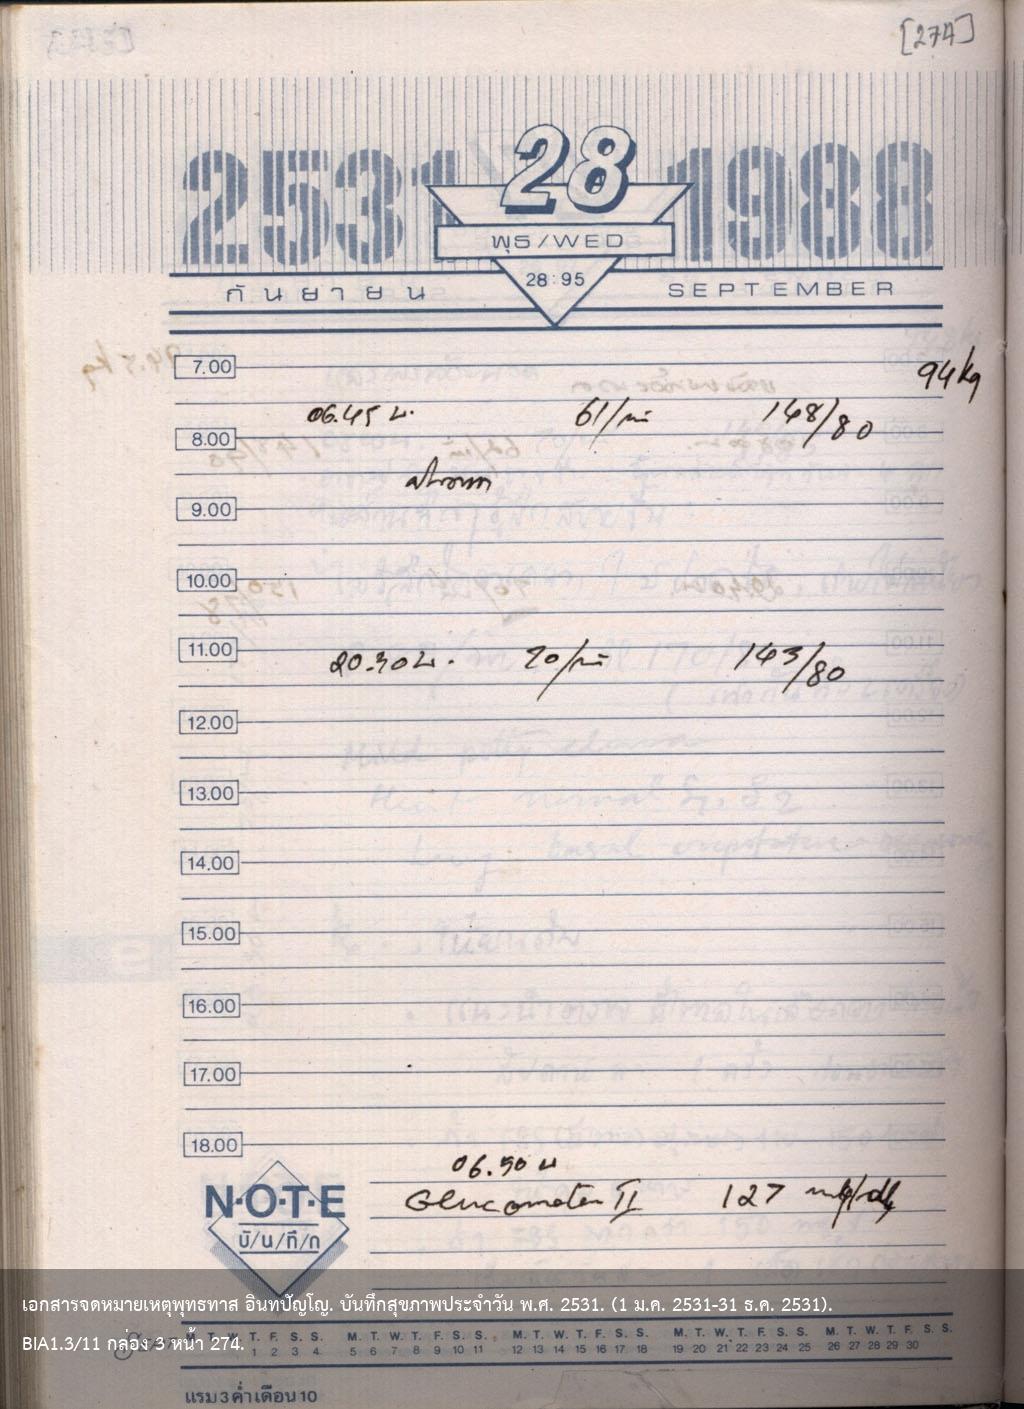 [274]
2531 28 1988
พุธ/WED
28:95
กันยายน SEPTEMBER
7.00 94 kg
06.45 น. 61/นาที 148/80
8.00
9.00
10.00
11.00
20.30 น. 70/นาที 143/80
12.00
13.00
14.00
15.00
16.00
17.00
18.00
06.50 น
N·O·T·E Glucometer II 127 mg/dl
บั/น/ทึ/ก
เอกสารจดหมายเหตุพุทธทาส อินทปัญโญ. บันทึกสุขภาพประจำวัน พ.ศ. 2531. (1 ม.ค. 2531-31 ธ.ค. 2531).
BIA1.3/11 กล่อง 3 หน้า 274.
M. T. W. T. F. S. S. M. T. W. T. F. S. S. M. T. W. T. F. S. S. M. T. W. T. F. S. S. M. T. W. T. F. S. S.
1 2 3 4 5 6 7 8 9 10 11 12 13 14 15 16 17 18 19 20 21 22 23 24 25 26 27 28 29 30
แรม 3 ค่ำ เดือน 10